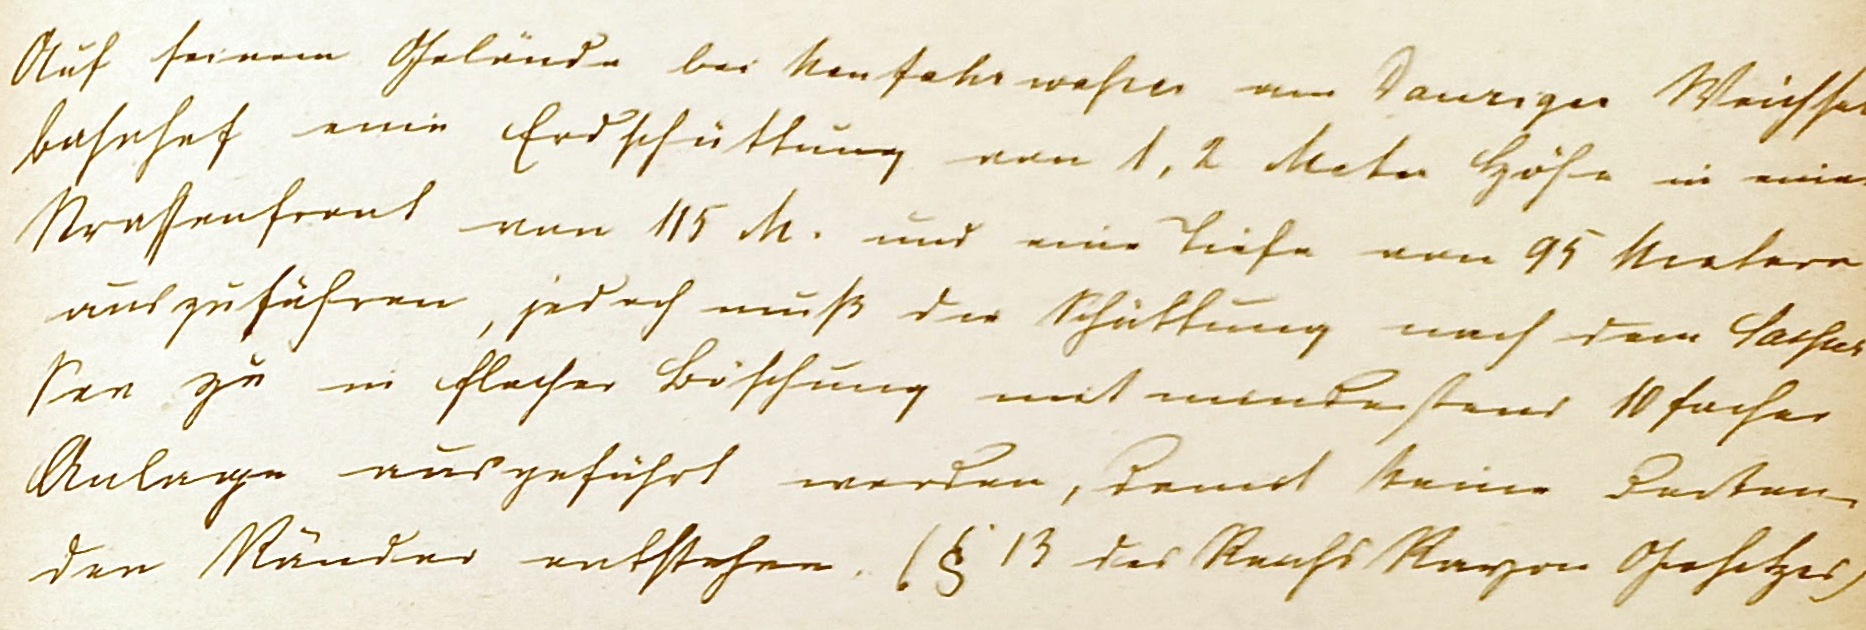 Auf seinem Gelände bei Neufahrwasser am Danziger Weichsel
bahnhof eine Erdschüttung von 1,2 Meter Höhe in einer
Strassenfront von 115 M. und eine Tiefe von 95 Metern
auszuführen, jedoch muß die Schüttung nach dem Sasper
See zu in flacher Böschung mit mindestens 10 facher
Anlage ausgeführt werden, damit keine decken
den Ränder entstehen. (§ 13 des Reichs Rayon Gesetzes)